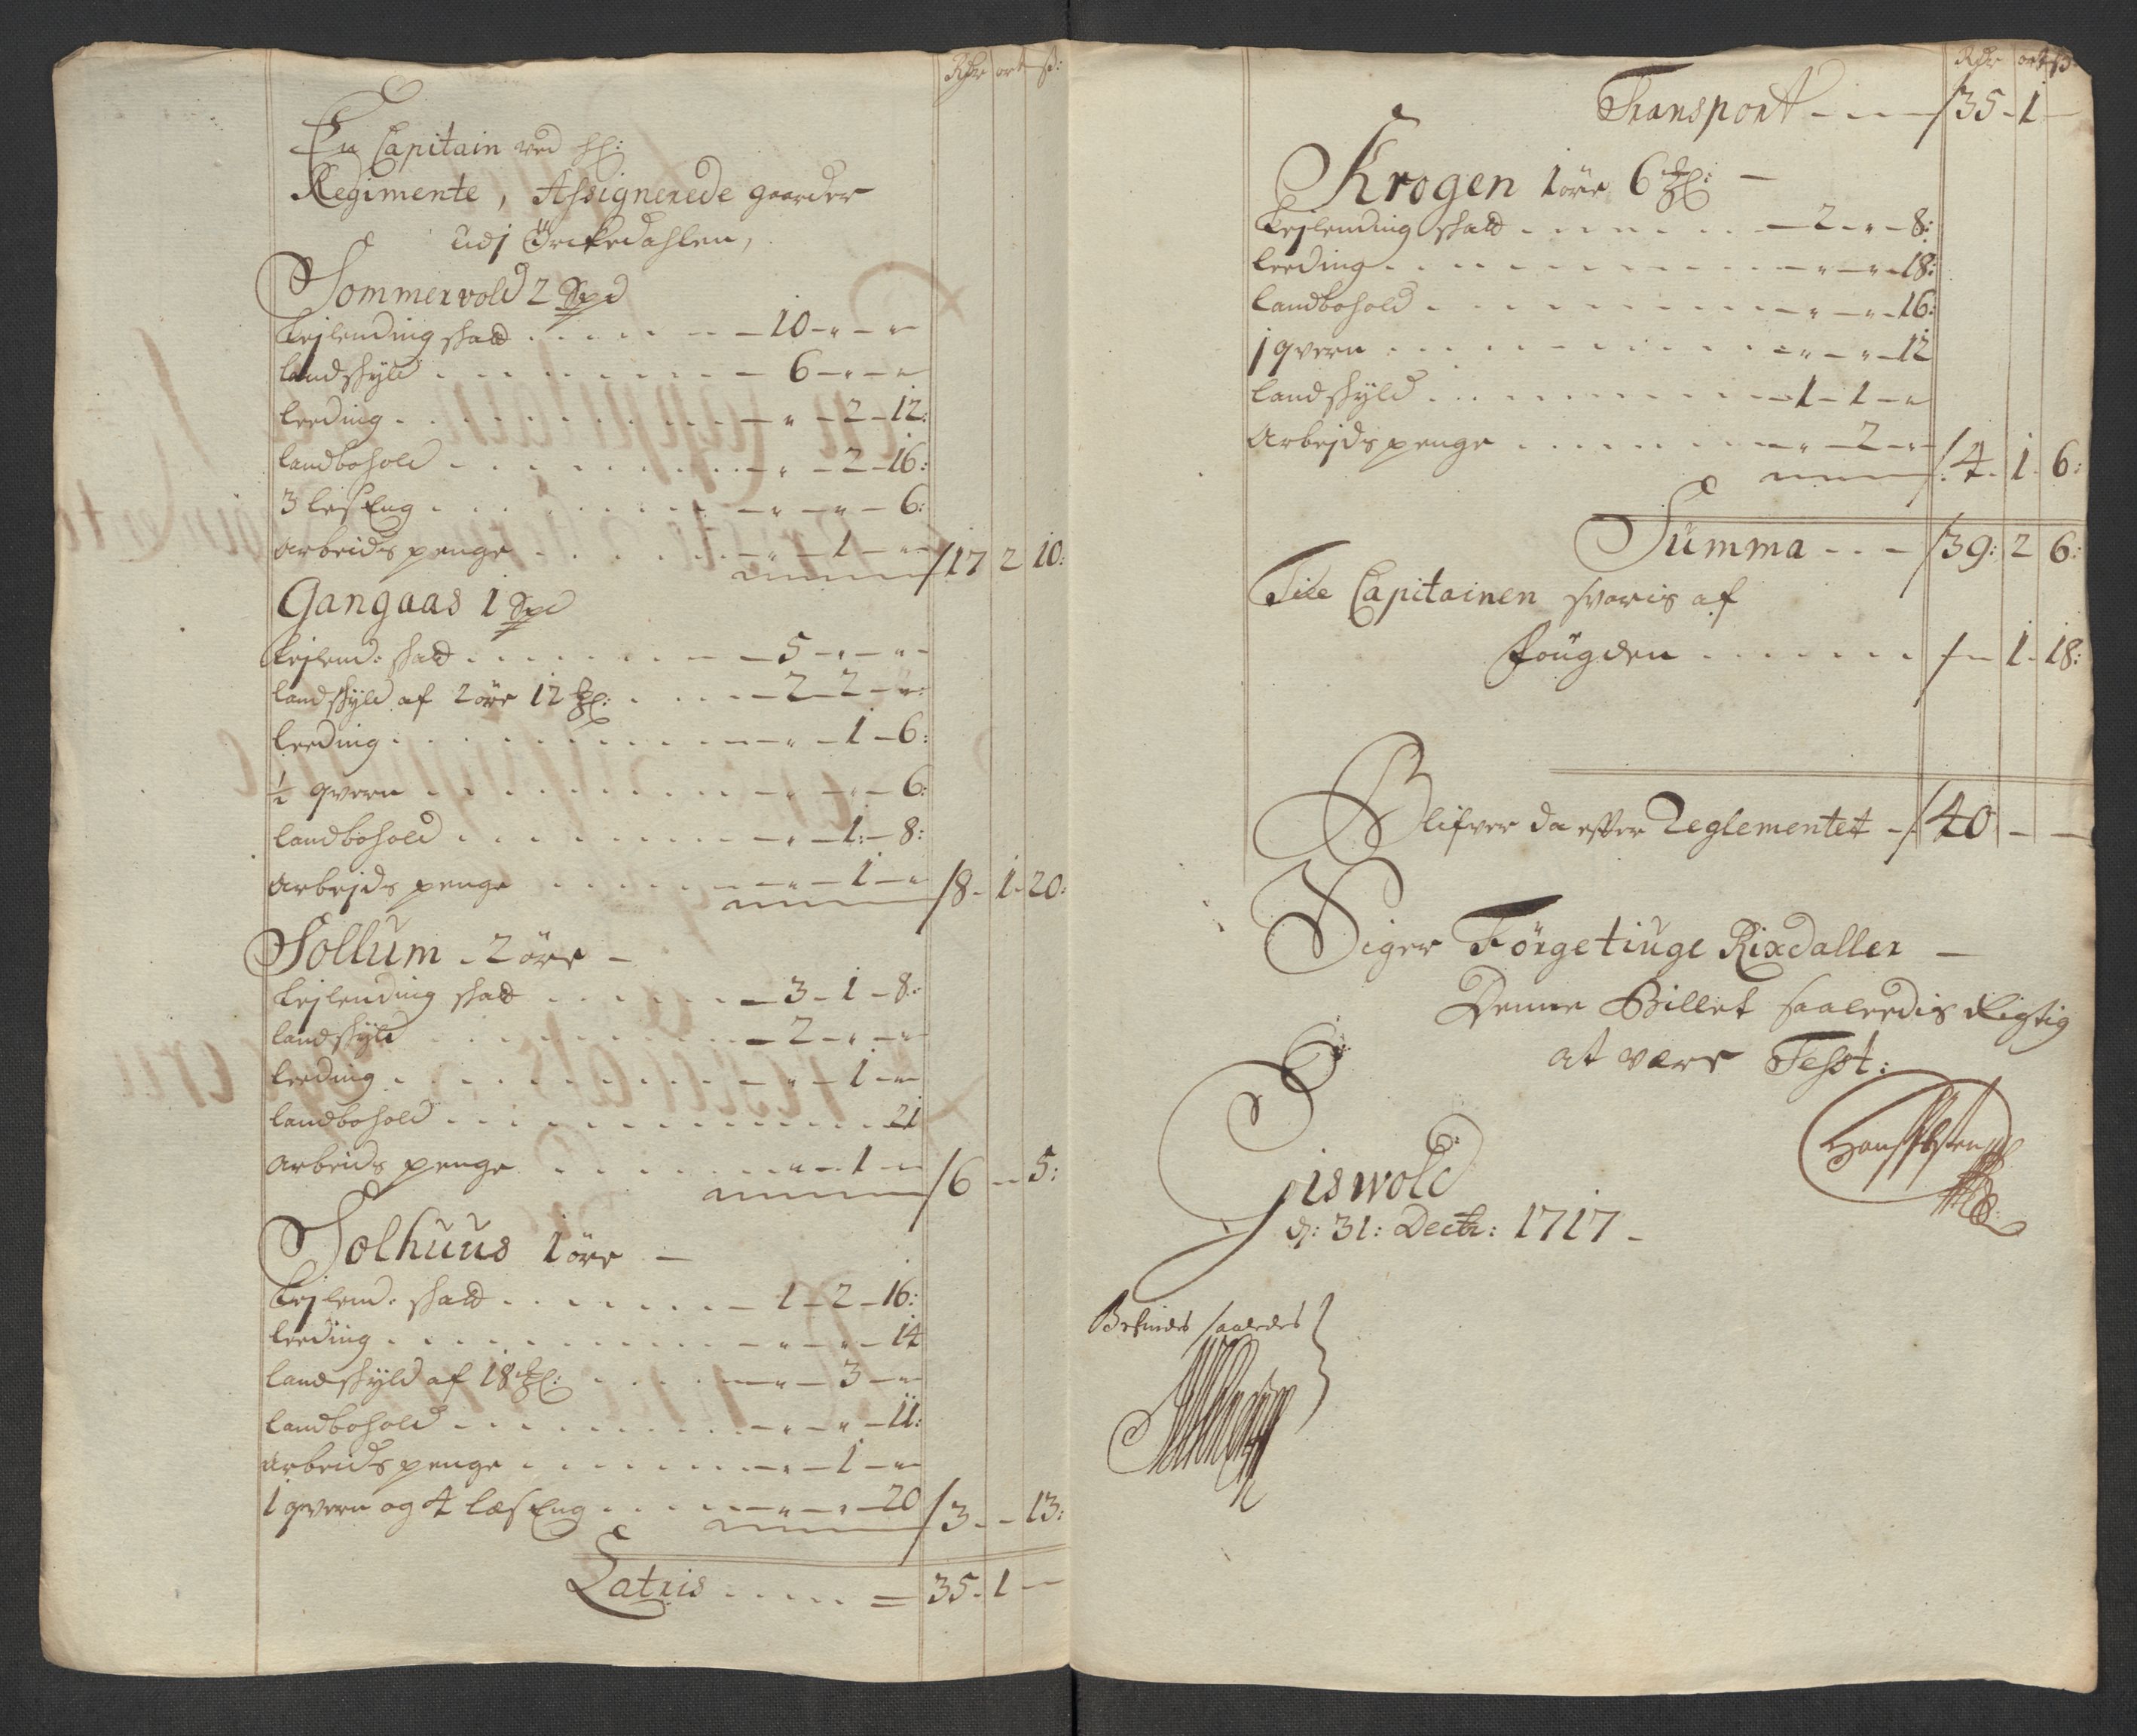 Rdr ort ß:
En Capitain ved
Regimente, Assignerede gaarder
udj Örckedahlen,
Sommervold 2 Spd
Lejlending skatt - 10 - " - "
landskyld - 6 - " - "
leeding - " - 2 - 12:
landbohold - " - 2 - 16:
3 les Eng - " - " - 6:
arbeids penge - " - 1 - " /17 2 10:
Gangaas 1 Spd
Lejlend: skatt - 5 - " - "
landskyld af 2 öre 12 - 2 - 2 - "
leeding - " - 1 - 6:
½ qvern - " - " - 6:
landbohold - " - 1: - 8:
arbejds penge - " - 1 - " /8 - 1 - 20:
Sollum - 2 öre -
Lejlending skatt - 3 - 1 - 8:
landskyld - 2 - " - "
leeding - " - 1 - "
landbohold - 21
arbeids penge - " - 1 - " /6 - - 5:
Solhuus 1 öre -
Lejlend: skatt - 1 - 2 - 16:
leeding - " - " - 14
landskyld af 18 - " - 3 - "
landbohold - " - " - 11:
arbeids penge - " - 1 - "
1 qvern og 4 læs Eng - " - " - 20 /3 - - 13:
Latris = 35 - 1 -
Rdr ort ß
Transport - - - /35 - 1 -
Krogen 1 öre 6 -
Lejlending skatt - 2 - " - 8:
leeding - " - " - 18:
landbohold - " - " - 16:
1 qvern - " - " - 12
landskyld - 1 - 1 - "
Arbejds penge - " - 2 - " /4 - 1 - 6:
Summa - - - /39: 2 6:
Till Capitainen svaris af
fougden - /- 1 - 18:
Blifver da efter Reglementet - /40 - -
Siger Förgetiuge Rixdaller -
Denne Billet saaleedis Rigtig
at være Test:
Giswold
d: 31: Dectr: 1717 -
Befindes saaledes